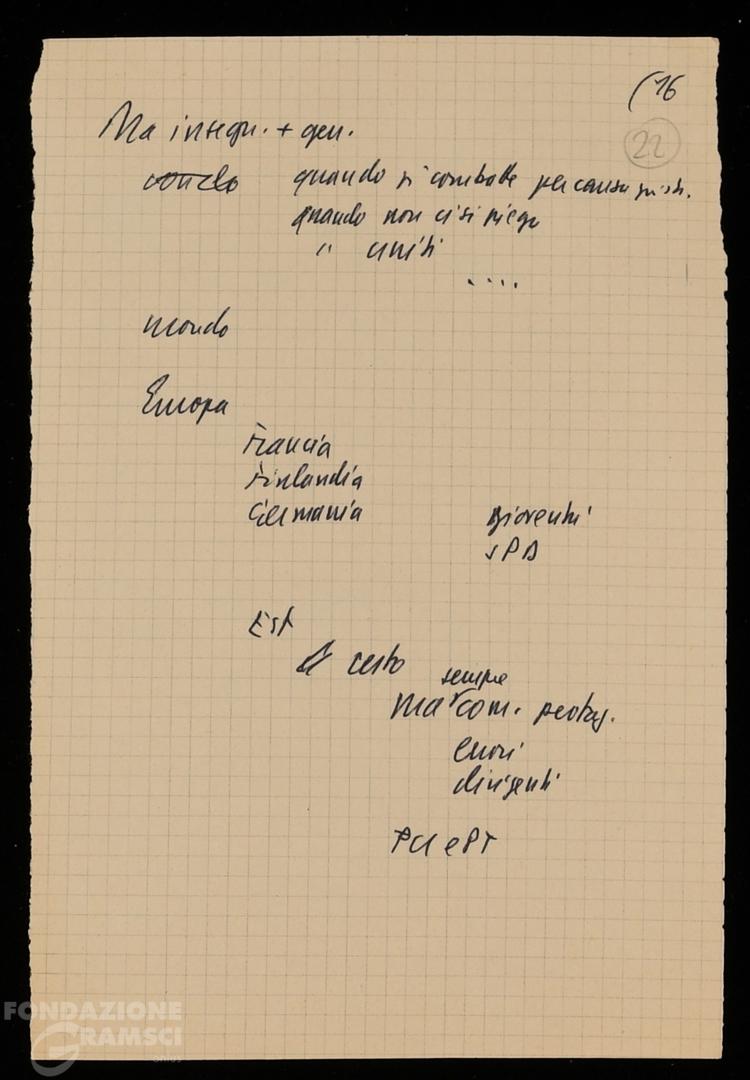 (16
22
Ma insegn. + gen.
mondo quando si combatte per causa giust.
quando non ci si piega
" uniti
....
mondo
Europa
Francia
Finlandia
Germania Gioventù
SPD
Est
certo
sempre
Ma com. protag.
errori
dirigenti
PCI e PT
FONDAZIONE
GRAMSCI
onlus